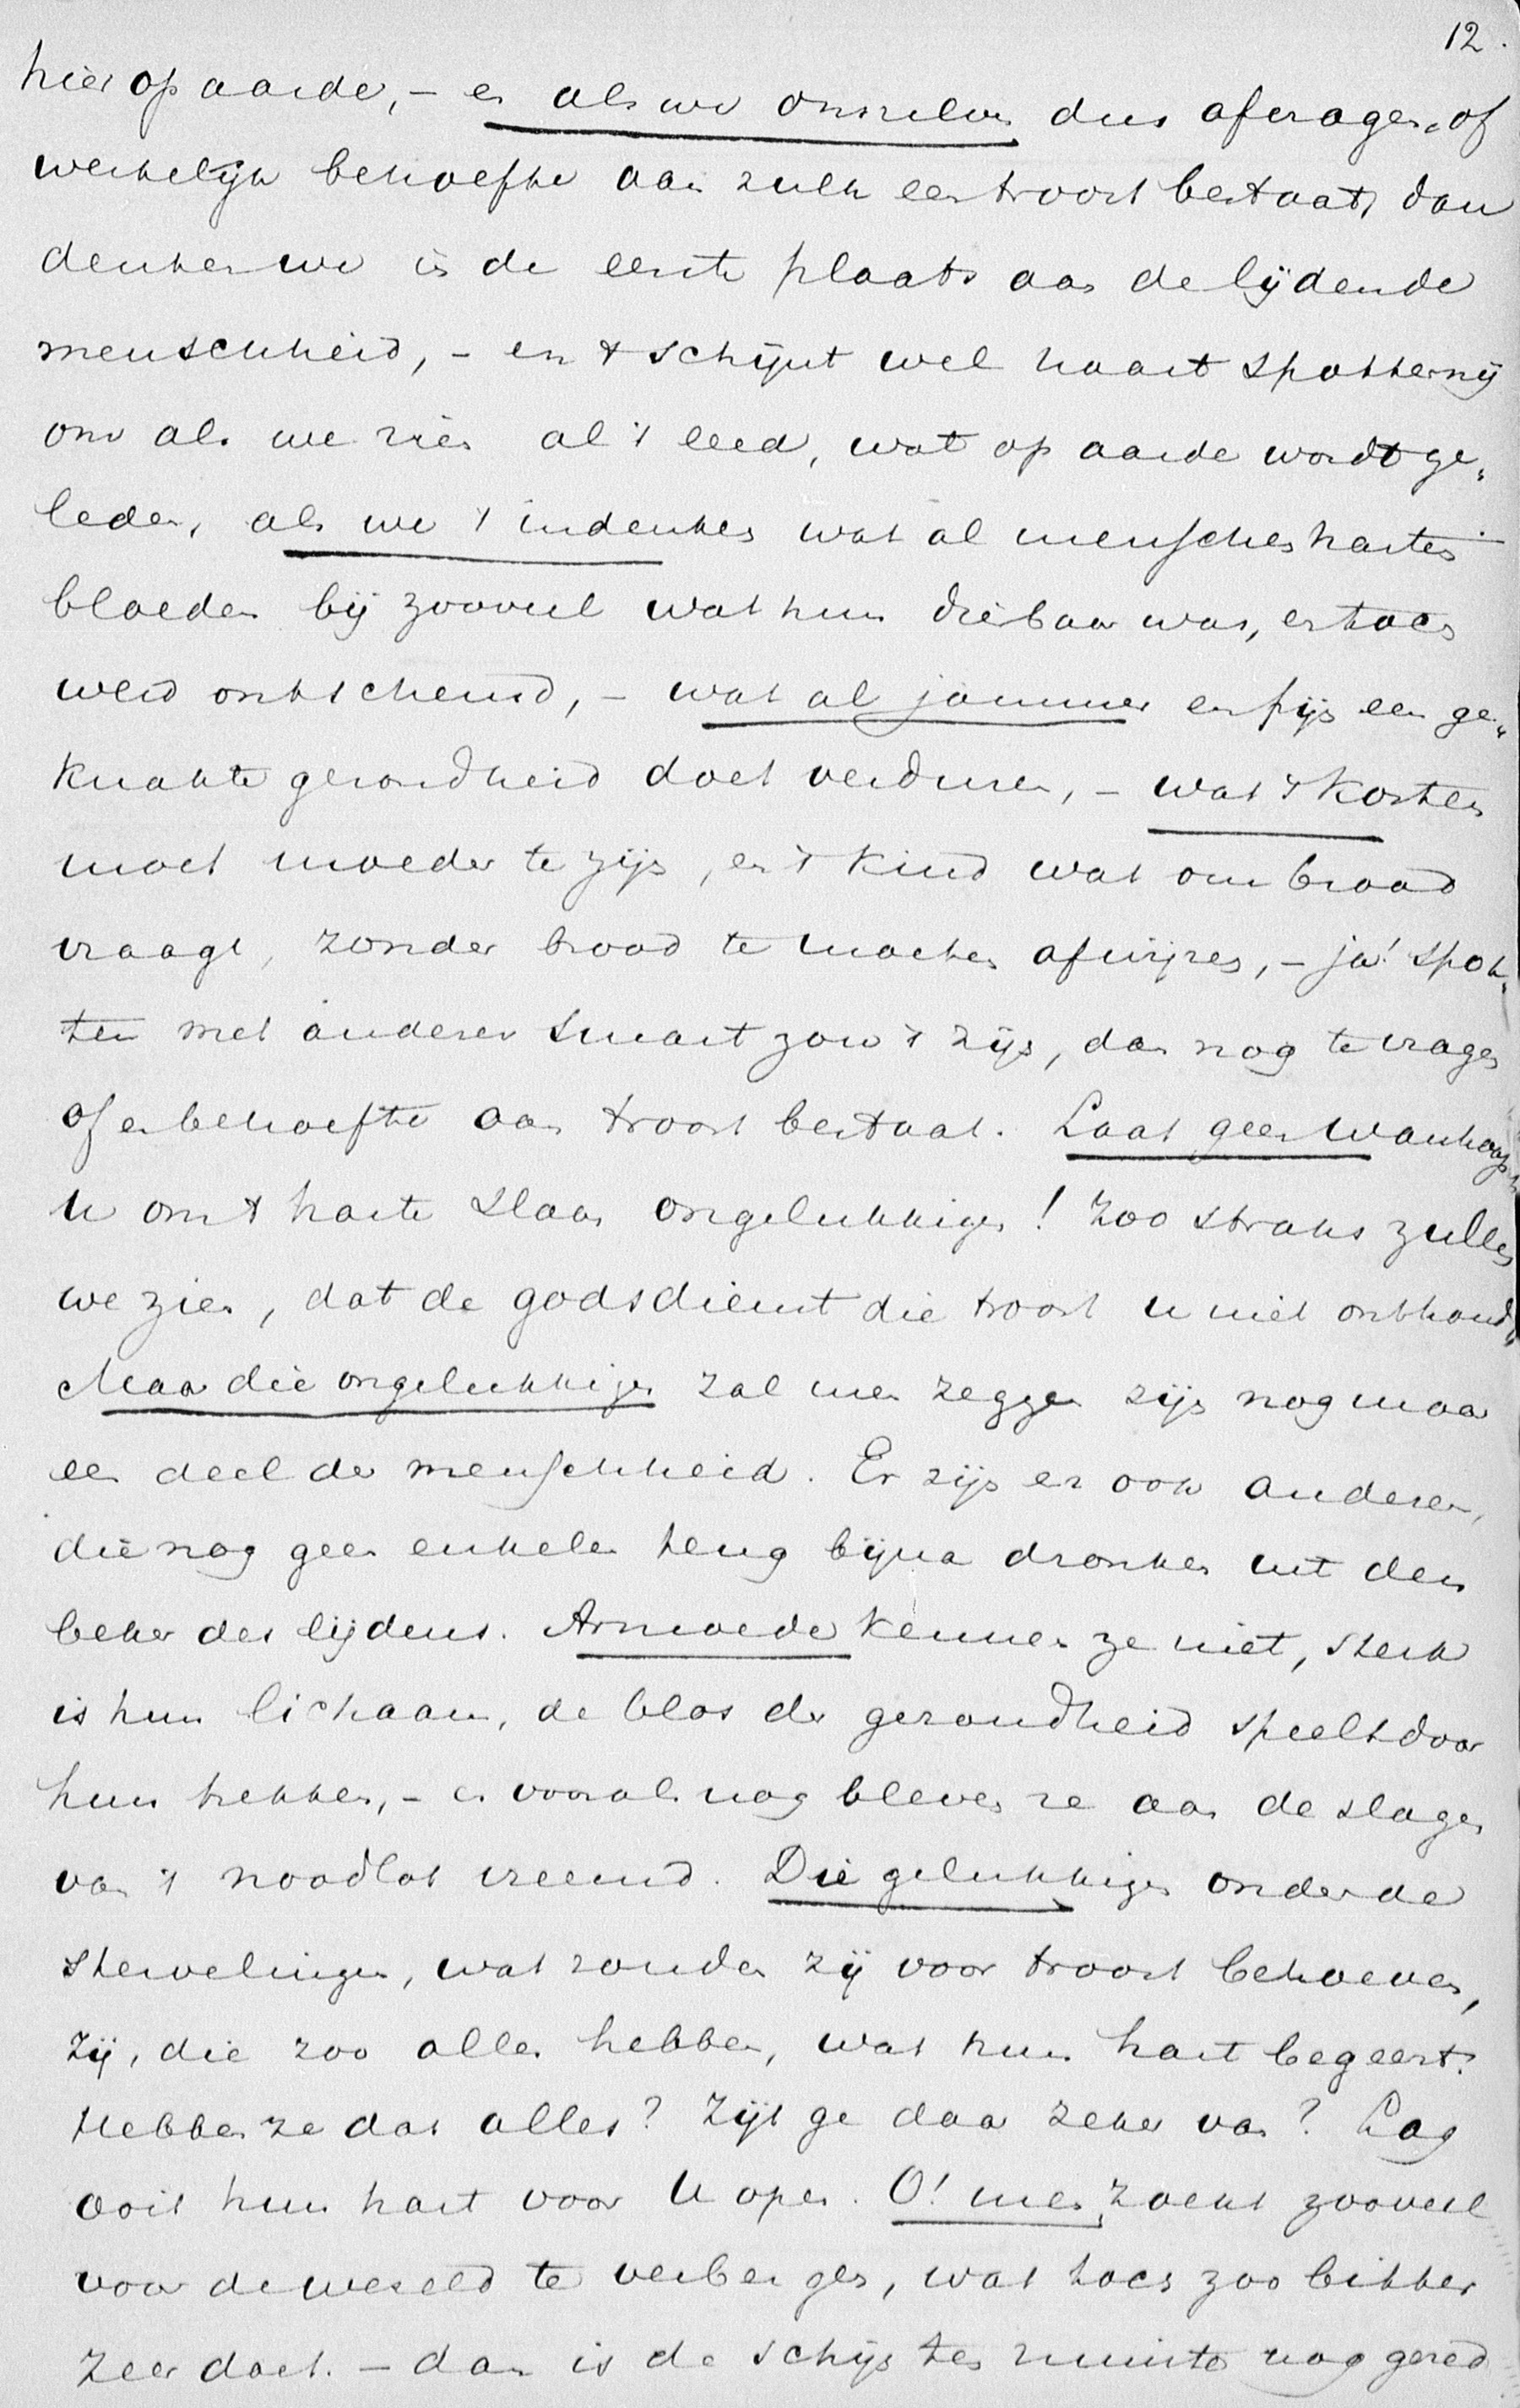 12.
hier op aarde, – en als we onszelven dus afvragen, of
werkelijk behoefte aan zulk een troost bestaat, dan
denken we in de eerste plaats aan de lijdende
menschheid, – en 't schijnt wel haast spotternij
om als we zien al 't leed, wat op aarde wordt ge„
leden, als we 't indenken wat al menschenharten
bloeden bij zooveel wat hun dierbaar was, en toch
werd ontscheurd, – wat al jammer en pijn een ge„
knakte gezondheid doet verduren, – wat 't kosten
moet moeder te zijn, en 't kind wat om brood
vraagt, zonder brood te moeten afwijzen, – ja! spot„
ten met anderer smart zou 't zijn, dan nog te vragen
of er behoefte aan troost bestaat. Laat geen wanhoop
u om 't harte slaan ongelukkigen! Zoo straks zullen
we zien, dat de godsdienst die troost u niet onthoudt
Maar die ongelukkigen zal men zeggen zijn nog maar
een deel der menschheid. Er zijn er ook anderen,
die nog geen enkelen teug bijna dronken uit den
beker des lijdens. Armoede kennen ze niet, sterk
is hun lichaam, de blos der gezondheid speelt door
hun trekken, – en vooral nog bleven ze aan de slagen
van 't noodlot vreemd. Die gelukkigen onder de
stervelingen, wat zouden zij voor troost behoeven,
zij, die zoo alles hebben, wat hun hart begeert?
Hebben ze dat alles? Zijt ge daar zeker van? Lag
ooit hun hart voor U open. O! men zoekt zooveel
voor de wereld te verbergen, wat toch zoo bitter
zeer doet. – dan is de schijn ten minste nog gered